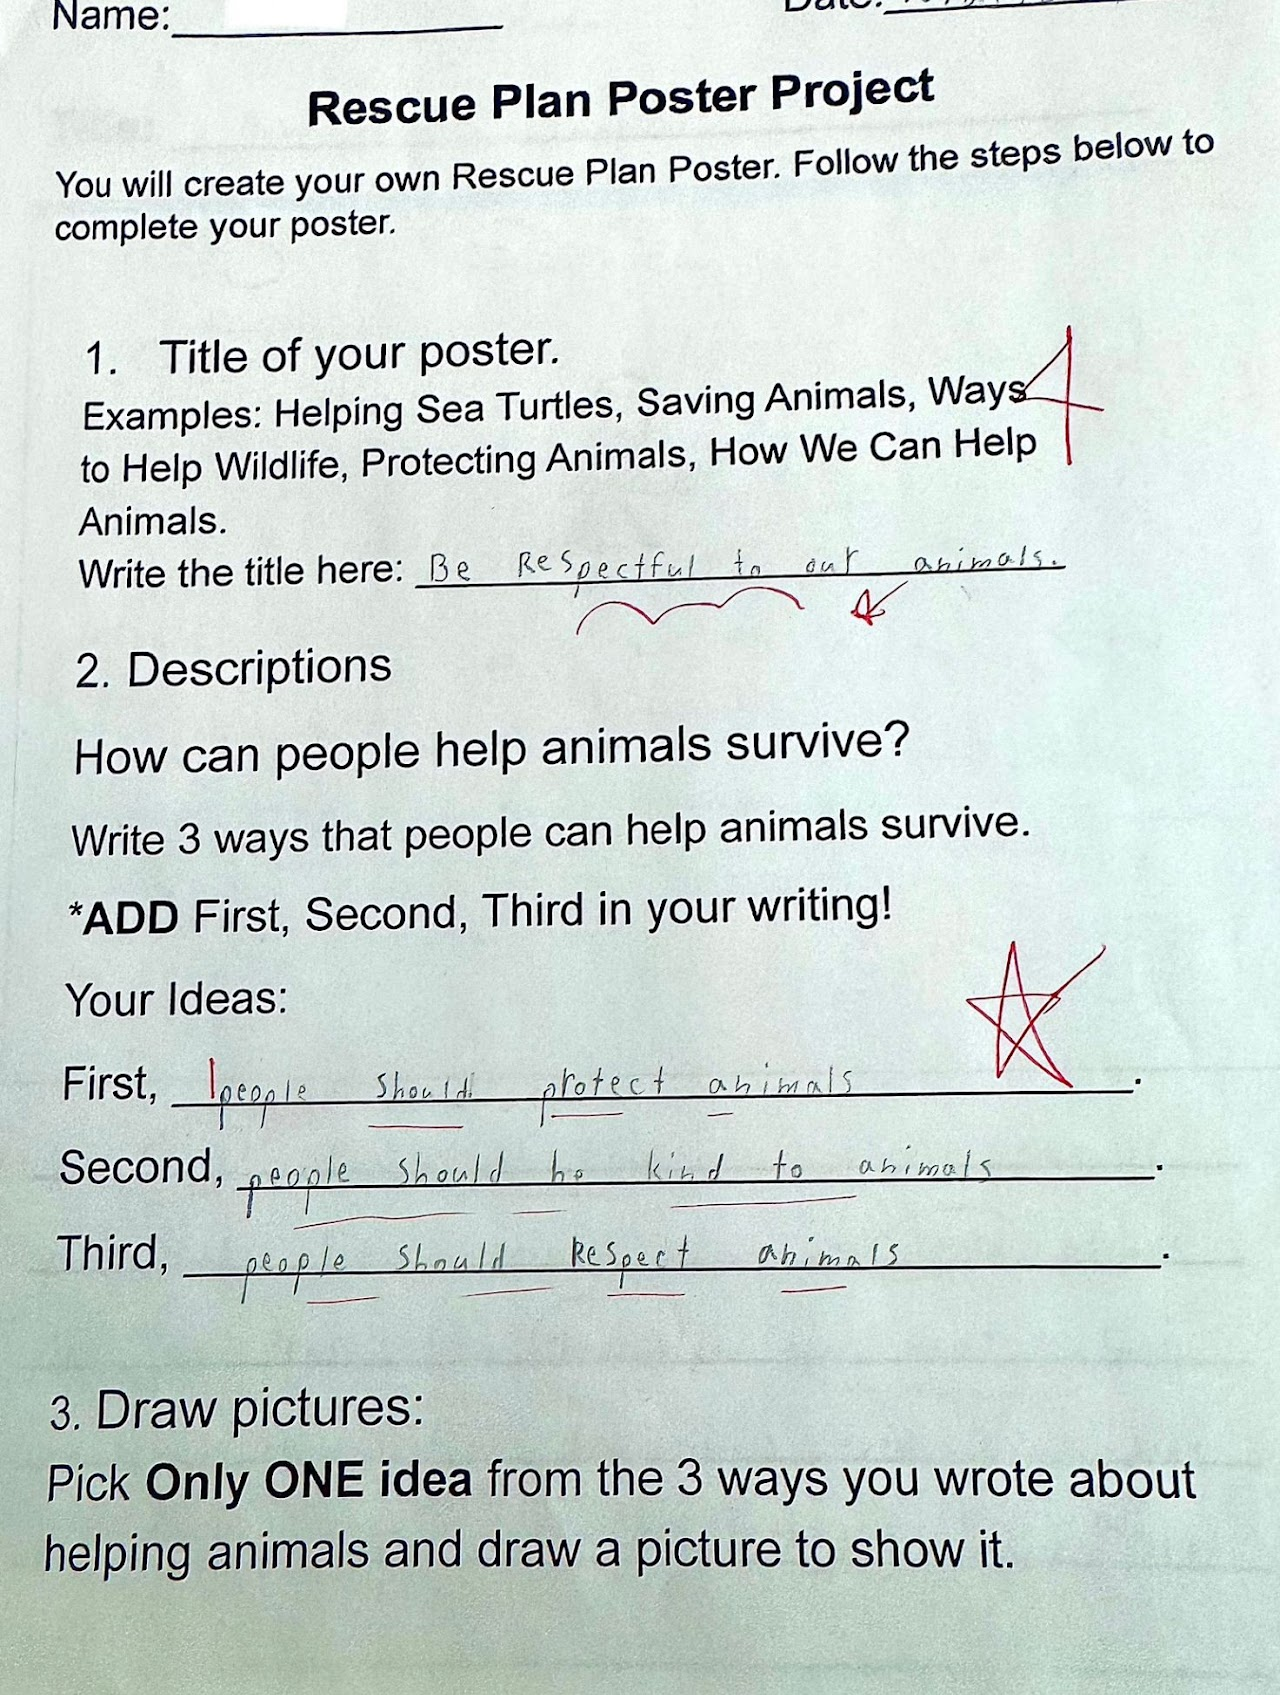 Name:
Date:
Rescue Plan Poster Project
You will create your own Rescue Plan Poster. Follow the steps below to
complete your poster.
1. Title of your poster.
Examples: Helping Sea Turtles, Saving Animals, Ways
to Help Wildlife, Protecting Animals, How We Can Help
Animals.
4
Write the title here: Be Respectful to our animals.
2. Descriptions
How can people help animals survive?
Write 3 ways that people can help animals survive.
*ADD First, Second, Third in your writing!
Your Ideas:
First, people should protect animals.
Second, people should be kind to animals.
Third, people should Respect animals.
3. Draw pictures:
Pick Only ONE idea from the 3 ways you wrote about
helping animals and draw a picture to show it.